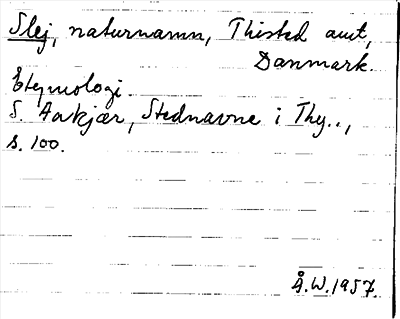 Slej, naturnamn, Thisted amt,
Danmark.
Etymologi.
S. Aakjær, Stednavne i Thy..,
s. 100.
Å.W.1957.